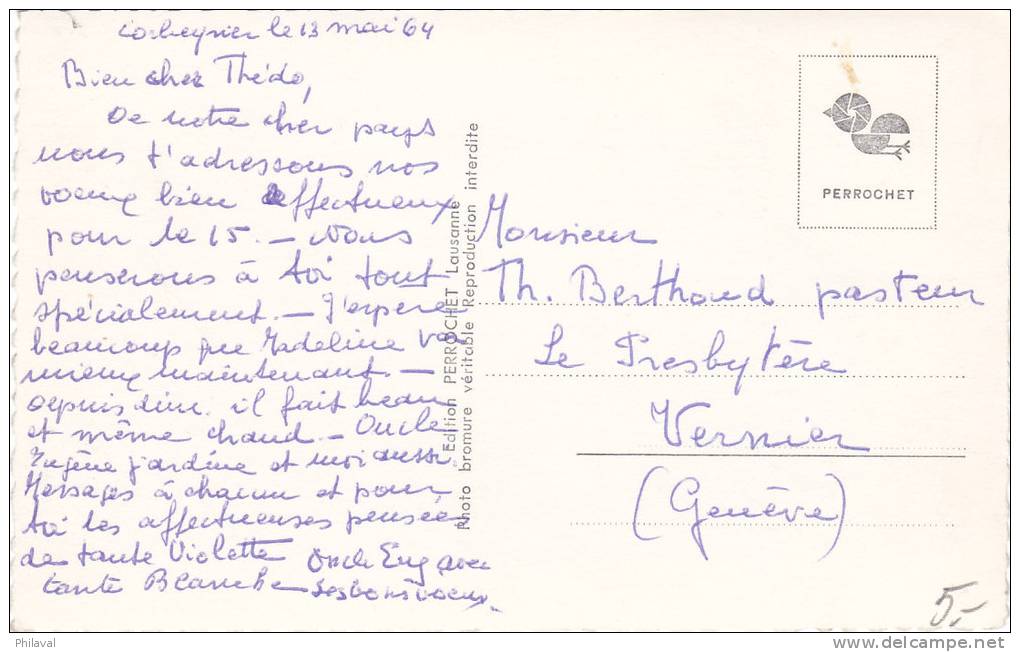 Corbeyrier le 13 mai 64
Bien cher Thédo,
De notre cher pays
nous t'adressons nos
voeux bien affectueux
pour le 15. — Nous
penserons à toi tout
spécialement. — J'espère
beaucoup que Madeline va
mieux maintenant. —
Depuis dim. il fait beau
et même chaud. — Oncle
Eugène jardine et moi aussi.
Messages à chacun et pour
toi les affectueuses pensées
de tante Violette
Oncle Eug avec
tante Blanche
ses bons voeux.
Edition PERROCHET Lausanne
Photo bromure véritable Reproduction interdite
PERROCHET
Monsieur
Th. Berthoud pasteur
Le Presbytère
Vernier
(Genève)
5.-
Philaval
www.delcampe.net